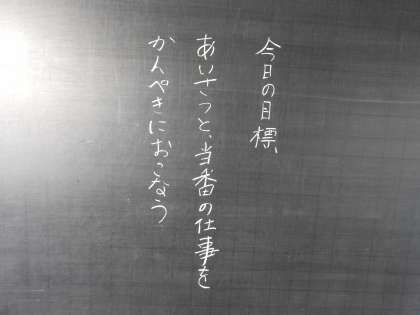 今日の目標、
あいさつと、当番の仕事を
かんぺきにおこなう